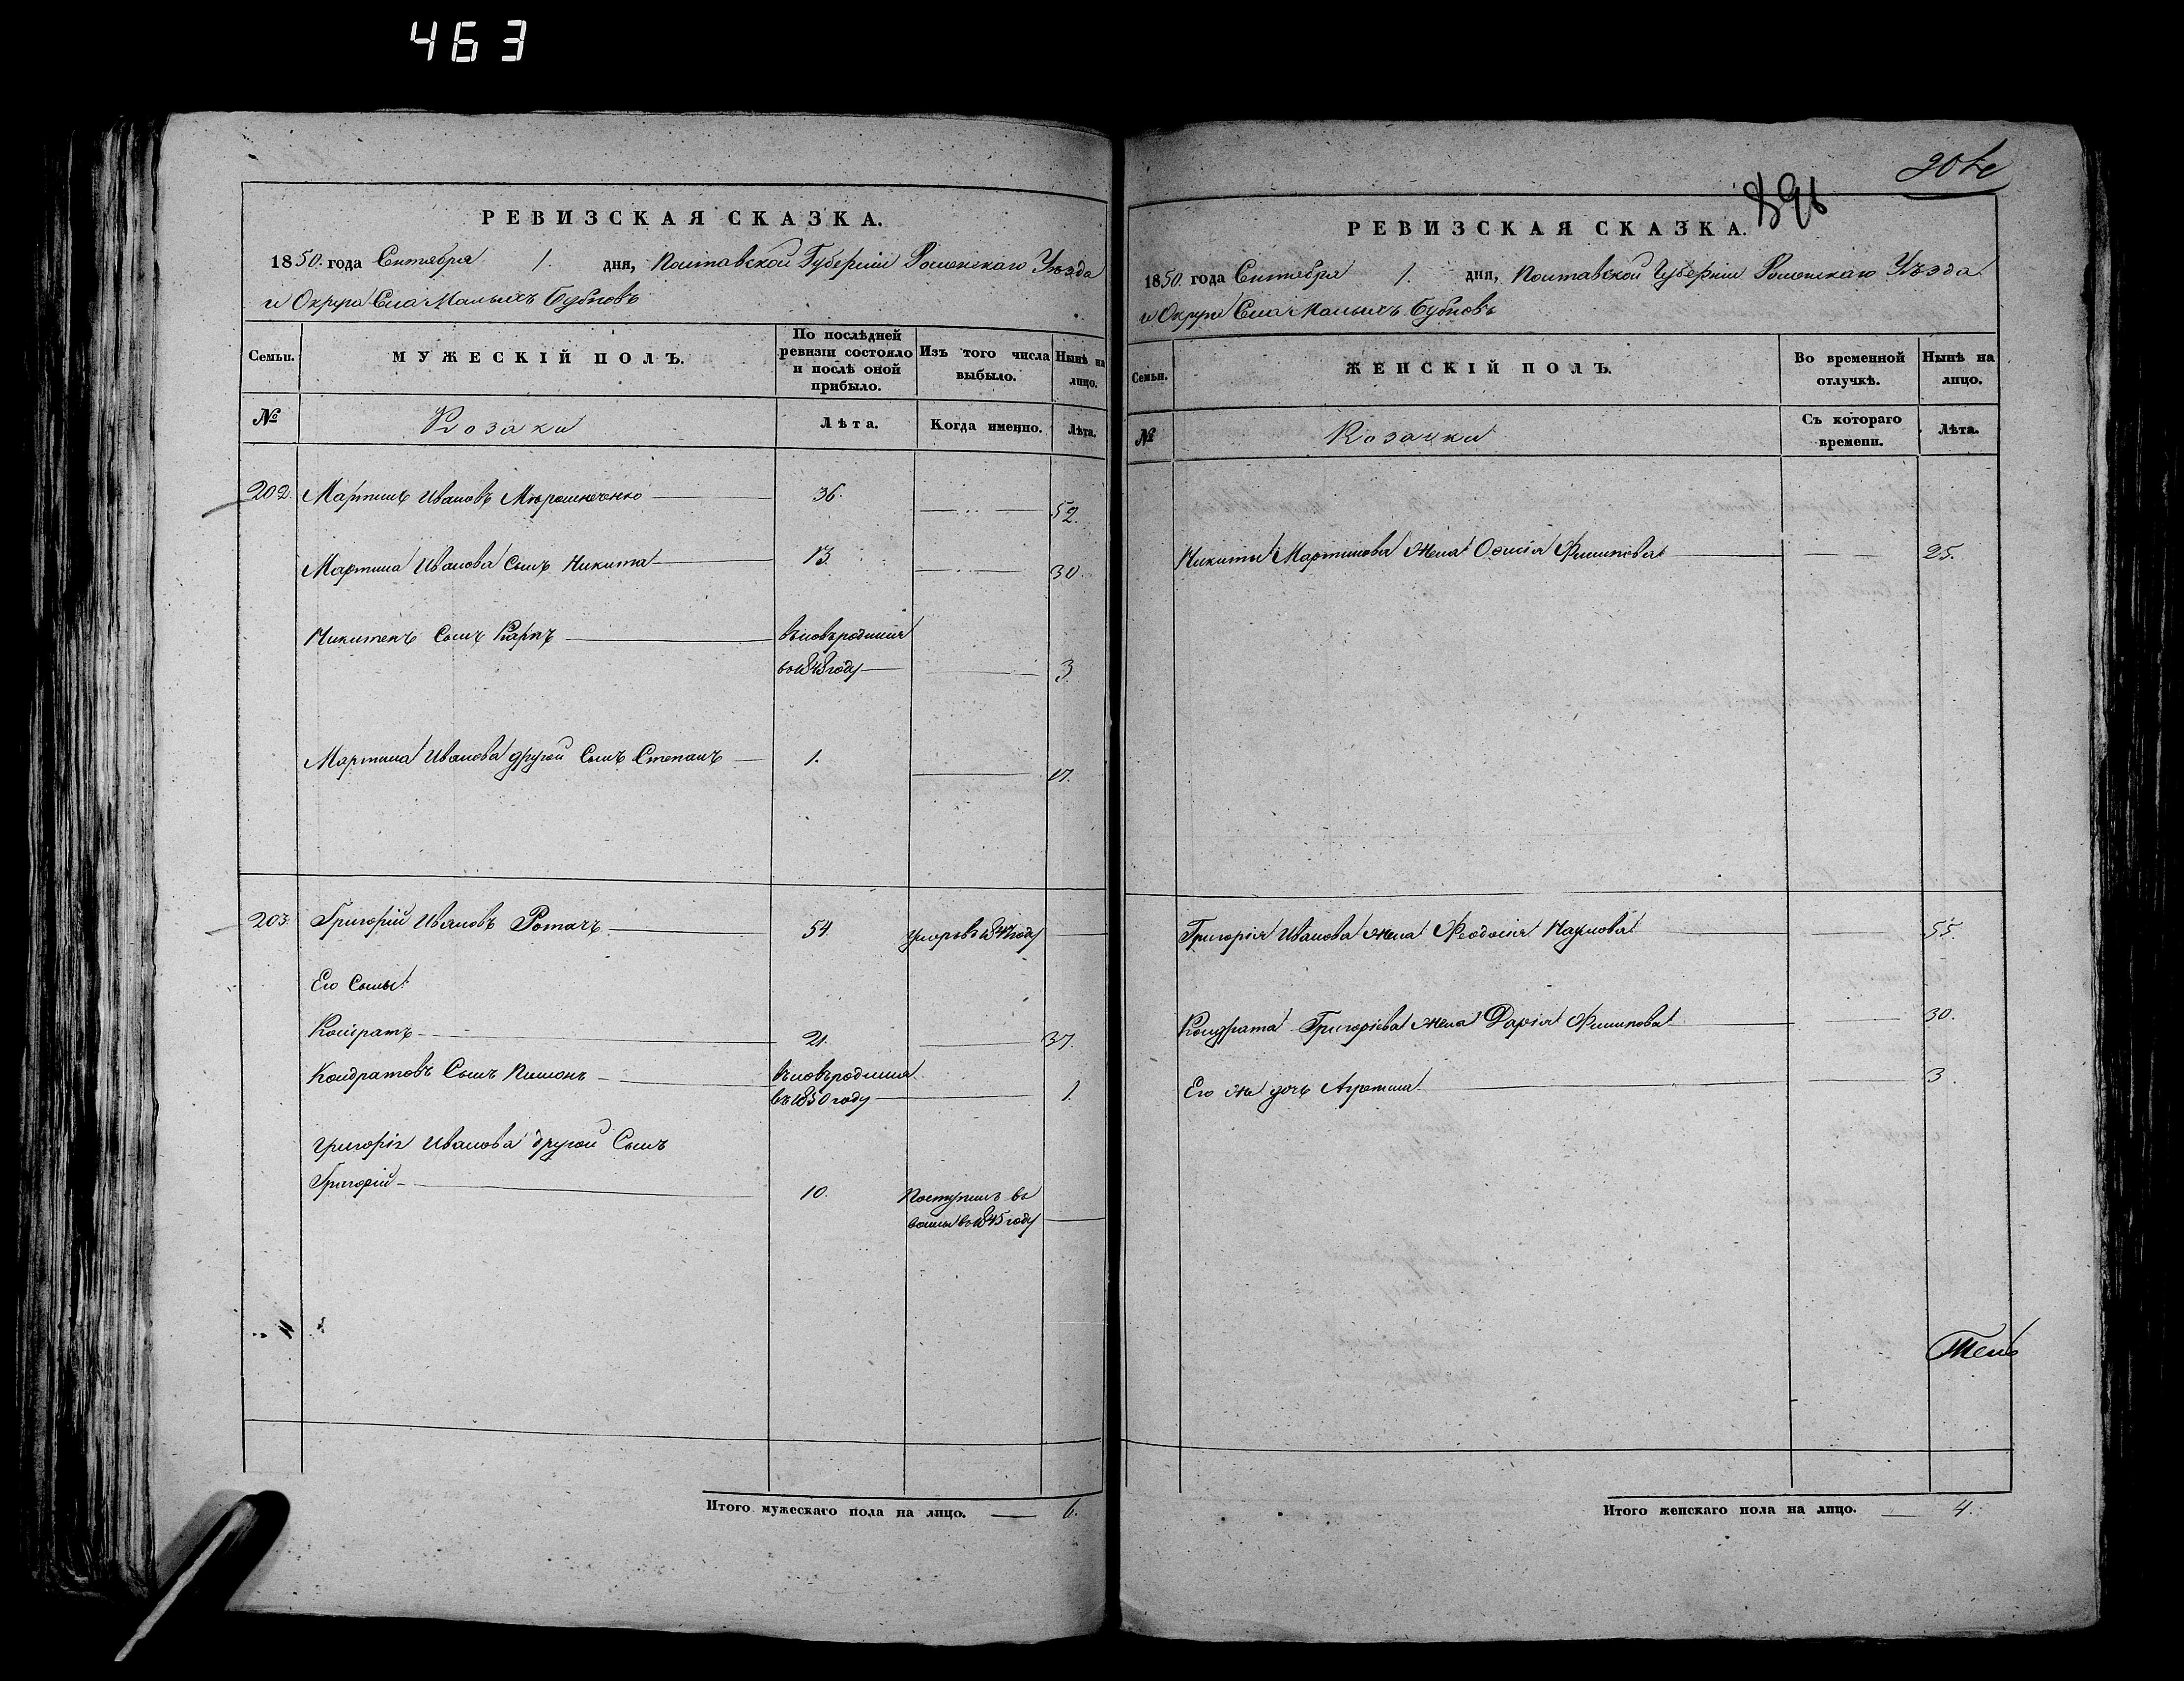 463
РЕВИЗСКАЯ СКАЗКА.
1850. года Сентября 1. дня, Полтавской Губерніи Роменскаго Уѣзда
и Округа Села Малыхъ Бубновъ
Семьи.
МУЖЕСКІЙ ПОЛЪ.
По послѣдней ревизіи состояло и послѣ оной прибыло.
Изъ того числа выбыло.
Нынѣ на лицо.
№
Козаки
Лѣта.
Когда именно.
Лѣта.
202. Мартинъ Ивановъ Мирошнеченко 36. 52.
Мартина Иванова Сынъ Никита 13. 30.
Никитенъ Сынъ Карпъ вновьродился
въ 1848 году 3
Мартина Иванова другой Сынъ Степанъ 1. 17.
203. Григорій Ивановъ Ротачъ 54. Умеръ въ 1847 году
Его Сыны:
Кондратъ 21. 37.
Кондратовъ Сынъ Пимонъ вновьродился
въ 1850 году 1.
Григорія Иванова другой Сынъ
Григорій 10. Поступилъ въ
въ 1845 году
Итого мужескаго пола на лицо. 6.
896
РЕВИЗСКАЯ СКАЗКА.
1850. года Сентября 1. дня, Полтавской Губерніи Роменскаго Уѣзда
и Округа Села Малыхъ Бубновъ
Семьи.
ЖЕНСКІЙ ПОЛЪ.
Во временной отлучкѣ.
Нынѣ на лицо.
№
Козачки
Съ котораго времени.
Лѣта.
Никиты Мартинова жена Филипова 25.
Григорія Иванова жена Феодосія Наумова 55.
Кондрата Григоріева жена Дарія Филипова 30.
Его же дочь Агрепина 3.
Итого женскаго пола на лицо. 4.